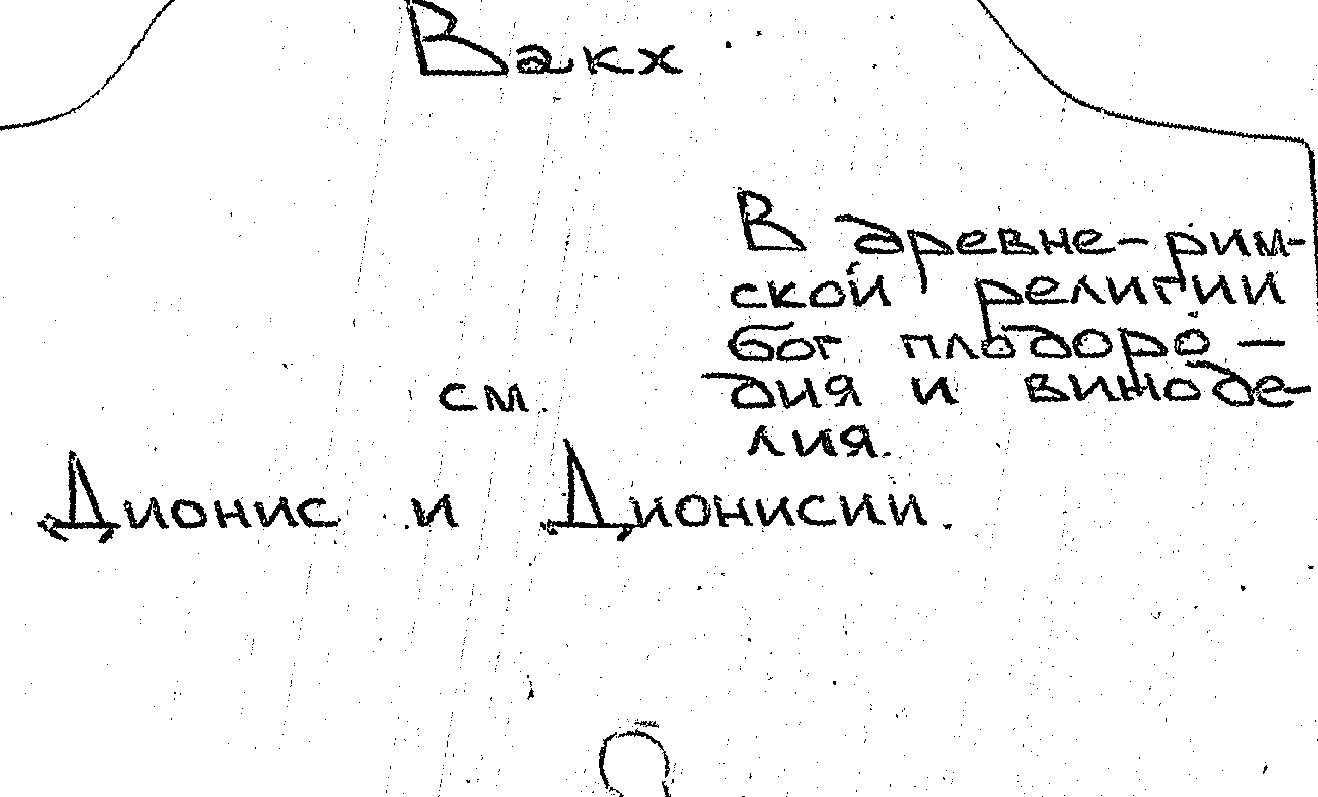 Вакх
В древне-рим-
ской религии
бог плодоро-
дия и виноде-
лия.
см.
Дионис и Дионисии.